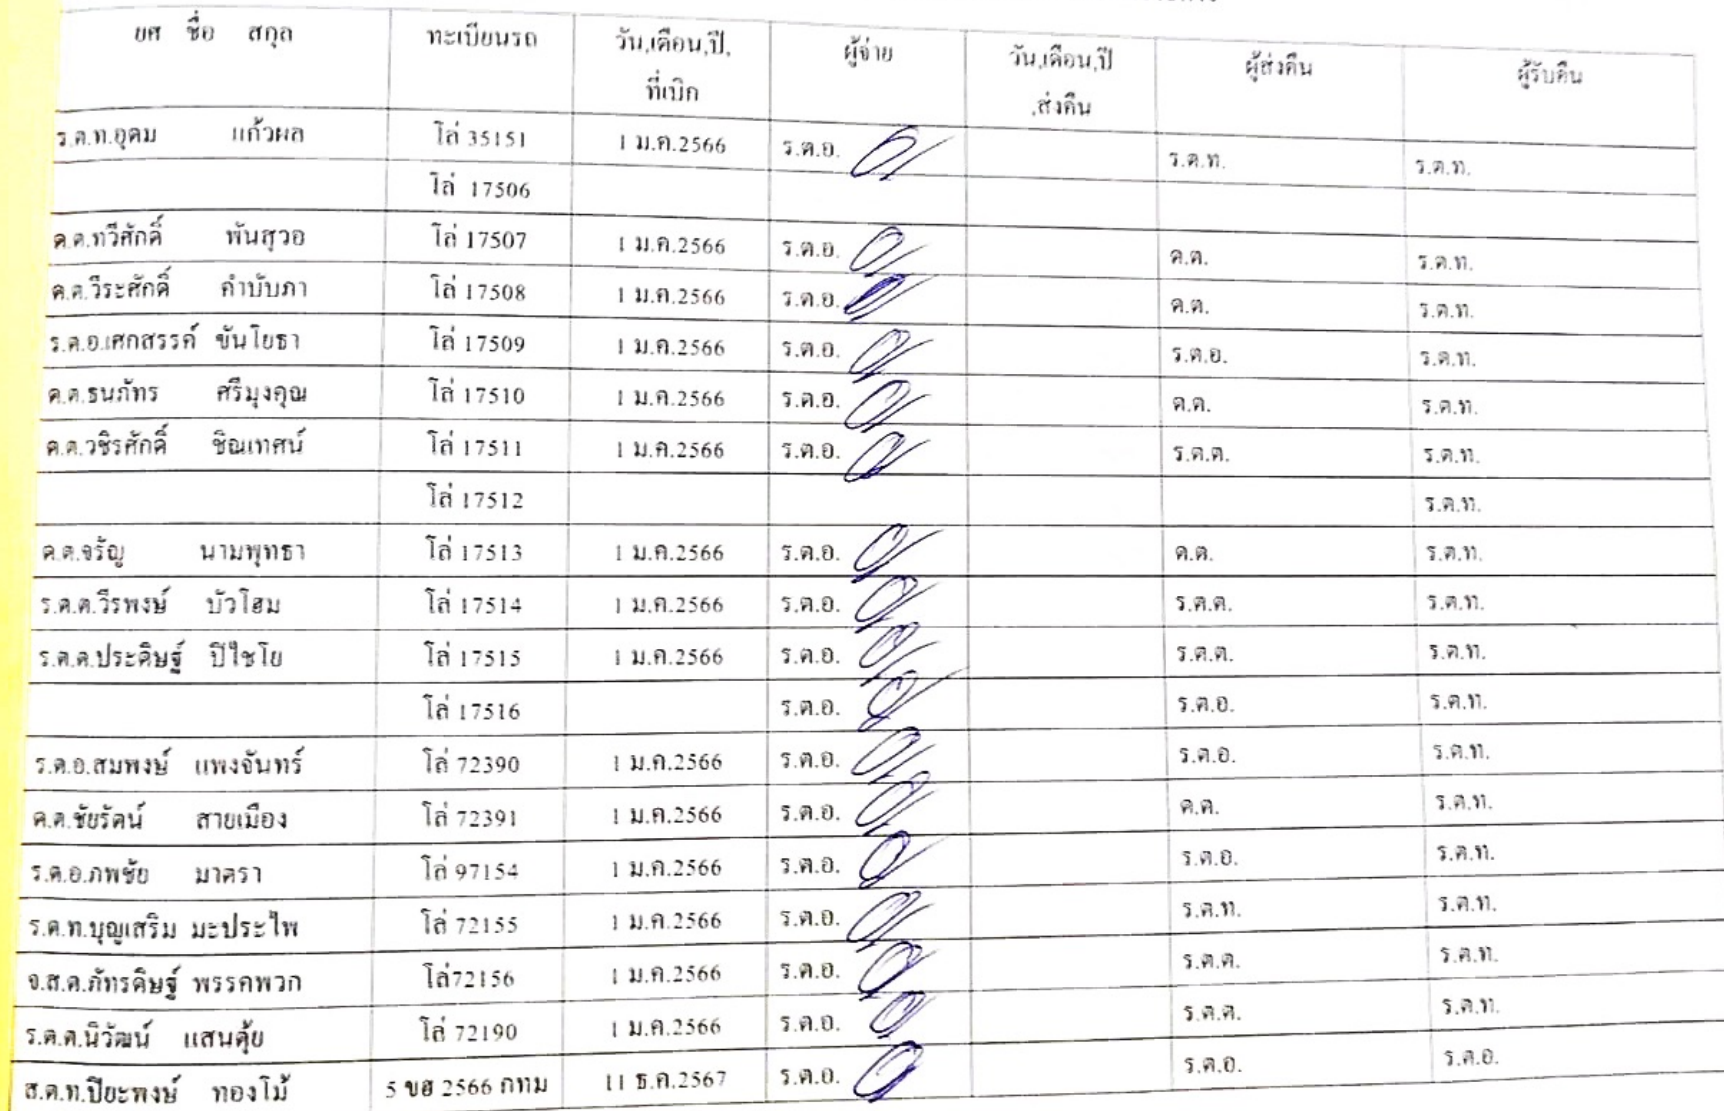 ยศ ชื่อ สกุล ทะเบียนรถ วัน,เดือน,ปี, ที่เบิก ผู้จ่าย วัน,เดือน,ปี ,ส่งคืน ผู้ส่งคืน ผู้รับคืน
ร.ต.ท.อุดม แก้วผล โล่ 35151 1 ม.ค.2566 ร.ต.อ. ร.ต.ท. ร.ต.ท.
โล่ 17506
ด.ต.ทวีศักดิ์ พันสุวอ โล่ 17507 1 ม.ค.2566 ร.ต.อ. ด.ต. ร.ต.ท.
ด.ต.วีระศักดิ์ คำบับภา โล่ 17508 1 ม.ค.2566 ร.ต.อ. ด.ต. ร.ต.ท.
ร.ต.อ.เศกสรรค์ ขันโยธา โล่ 17509 1 ม.ค.2566 ร.ต.อ. ร.ต.อ. ร.ต.ท.
ด.ต.ธนภัทร ศรีมุงคุณ โล่ 17510 1 ม.ค.2566 ร.ต.อ. ด.ต. ร.ต.ท.
ด.ต.วชิรศักดิ์ ชิณเทศน์ โล่ 17511 1 ม.ค.2566 ร.ต.อ. ร.ต.ต. ร.ต.ท.
โล่ 17512 ร.ต.ท.
ด.ต.จรัญ นามพุทธา โล่ 17513 1 ม.ค.2566 ร.ต.อ. ด.ต. ร.ต.ท.
ร.ต.ต.วีรพงษ์ บัวโฮม โล่ 17514 1 ม.ค.2566 ร.ต.อ. ร.ต.ต. ร.ต.ท.
ร.ต.ต.ประดิษฐ์ ปิใชโย โล่ 17515 1 ม.ค.2566 ร.ต.อ. ร.ต.ต. ร.ต.ท.
โล่ 17516 ร.ต.อ. ร.ต.อ. ร.ต.ท.
ร.ต.อ.สมพงษ์ แพงจันทร์ โล่ 72390 1 ม.ค.2566 ร.ต.อ. ร.ต.อ. ร.ต.ท.
ด.ต.ชัยรัตน์ สายเมือง โล่ 72391 1 ม.ค.2566 ร.ต.อ. ด.ต. ร.ต.ท.
ร.ต.อ.ภพชัย มาตรา โล่ 97154 1 ม.ค.2566 ร.ต.อ. ร.ต.อ. ร.ต.ท.
ร.ต.ท.บุญเสริม มะประไพ โล่ 72155 1 ม.ค.2566 ร.ต.อ. ร.ต.ท. ร.ต.ท.
จ.ส.ต.ภัทรดิษฐ์ พรรคพวก โล่72156 1 ม.ค.2566 ร.ต.อ. ร.ต.ต. ร.ต.ท.
ร.ต.ต.นิวัฒน์ แสนตุ้ย โล่ 72190 1 ม.ค.2566 ร.ต.อ. ร.ต.ต. ร.ต.ท.
ส.ต.ท.ปิยะพงษ์ ทองโม้ 5 ขฮ 2566 กทม 11 ธ.ค.2567 ร.ต.อ. ร.ต.อ. ร.ต.อ.